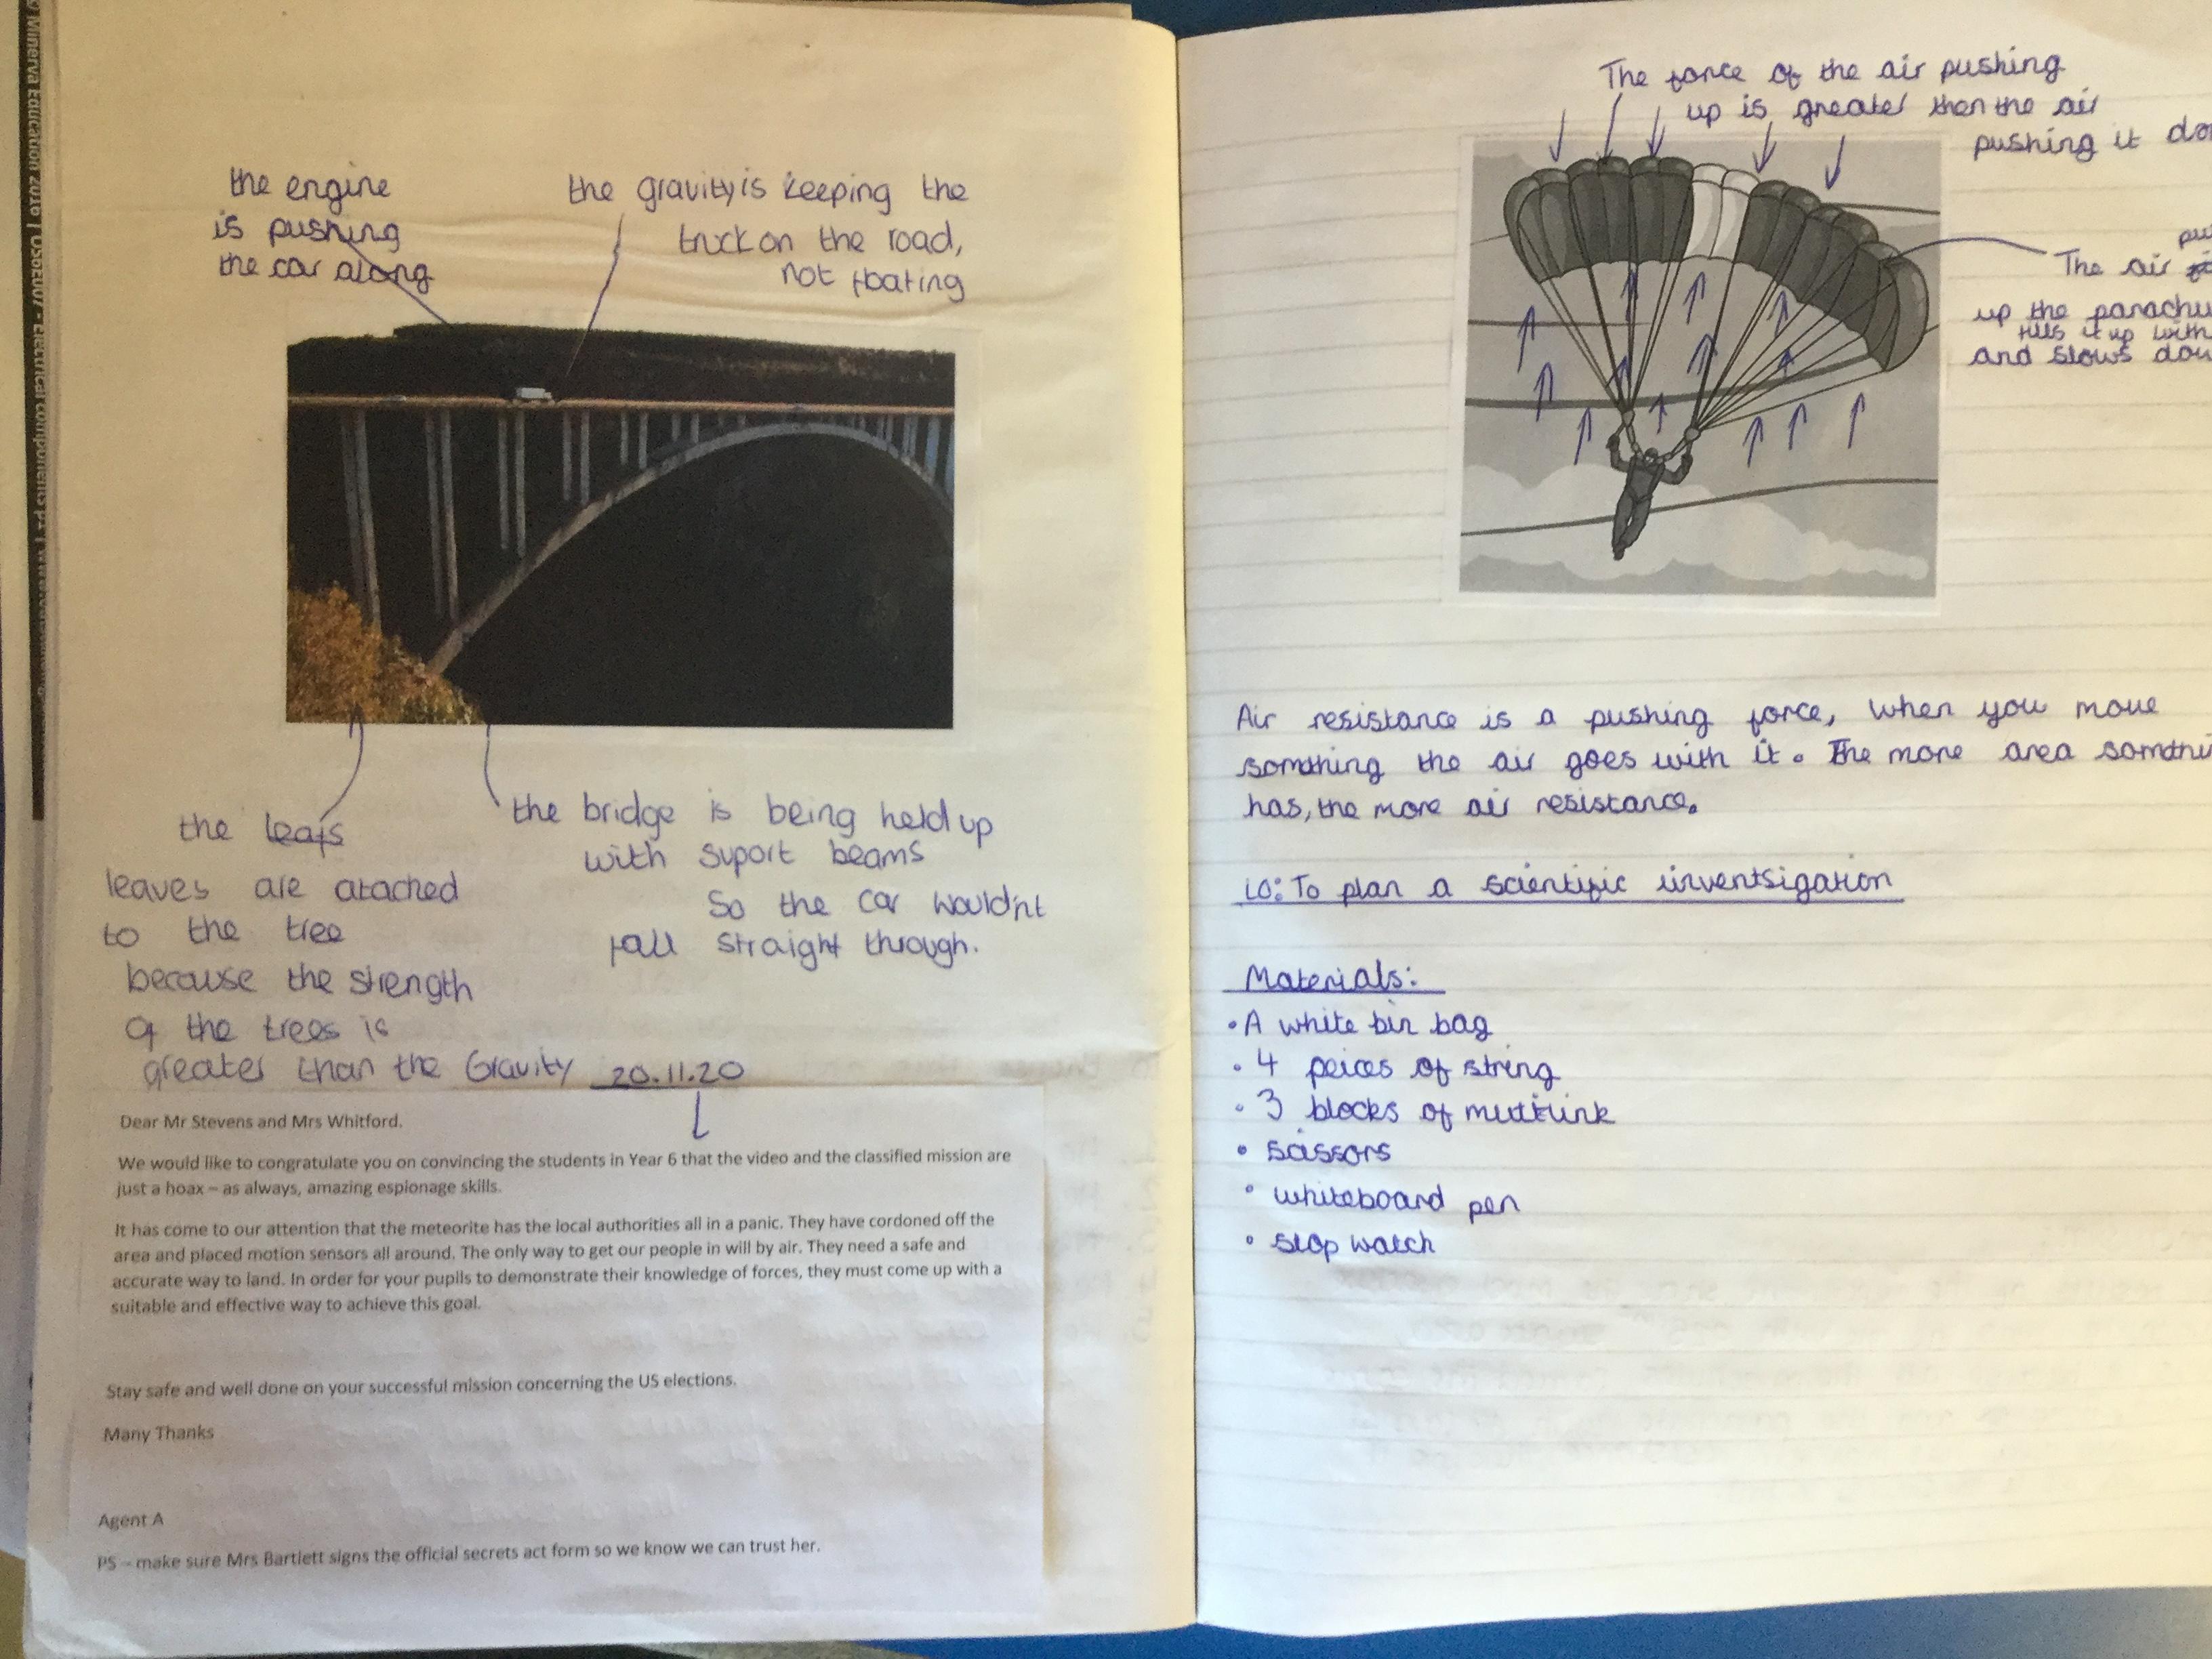 the engine
is pushing
the car along
the gravity is keeping the
truck on the road,
not floating
the leafs
leaves are atached
to the tree
because the strength
of the trees is
greater than the Gravity
the bridge is being held up
with suport beams
So the car wouldn't
fall straight through.
20.11.20
Dear Mr Stevens and Mrs Whitford.
We would like to congratulate you on convincing the students in Year 6 that the video and the classified mission are
just a hoax – as always, amazing espionage skills.
It has come to our attention that the meteorite has the local authorities all in a panic. They have cordoned off the
area and placed motion sensors all around. The only way to get our people in will by air. They need a safe and
accurate way to land. In order for your pupils to demonstrate their knowledge of forces, they must come up with a
suitable and effective way to achieve this goal.
Stay safe and well done on your successful mission concerning the US elections.
Many Thanks
Agent A
PS – make sure Mrs Bartlett signs the official secrets act form so we know we can trust her.
The force of the air pushing
up is greater then the air
pushing it
The air
up the
fills it up with
and slows
Air resistance is a pushing force, when you move
somthing the air goes with it. The more area
has, the more air resistance.
LO: To plan a scientific inventsigation
Materials:
• A white bin bag
• 4 peices of string
• 3 blocks of multilink
• scissors
• whiteboard pen
• stop watch
Minerva Education 2016 |
- Electrical components p1 |